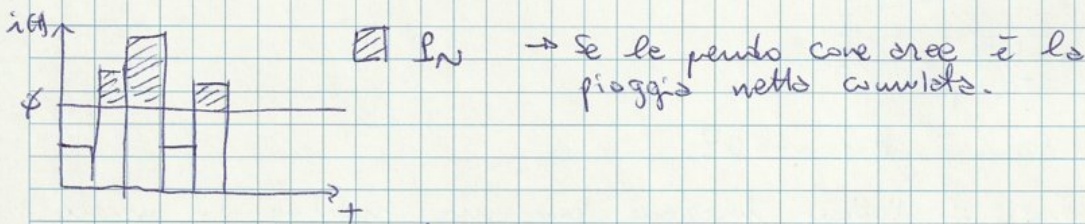 i(t)
▨ I_N → Se le prendo come aree è la
pioggia netta cumulata.
ϕ
t